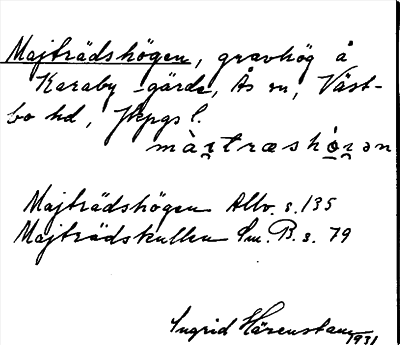 Majträdshögen, gravhög å
Karaby gärde, Ås sn, Väst-
bo hd, Jkpgs l.
mài̯træshö̀i̯ən
Majträdshögen Allv. s. 135
Majträdskullen Sm. B. s. 79
Ingrid Härenstam
1931